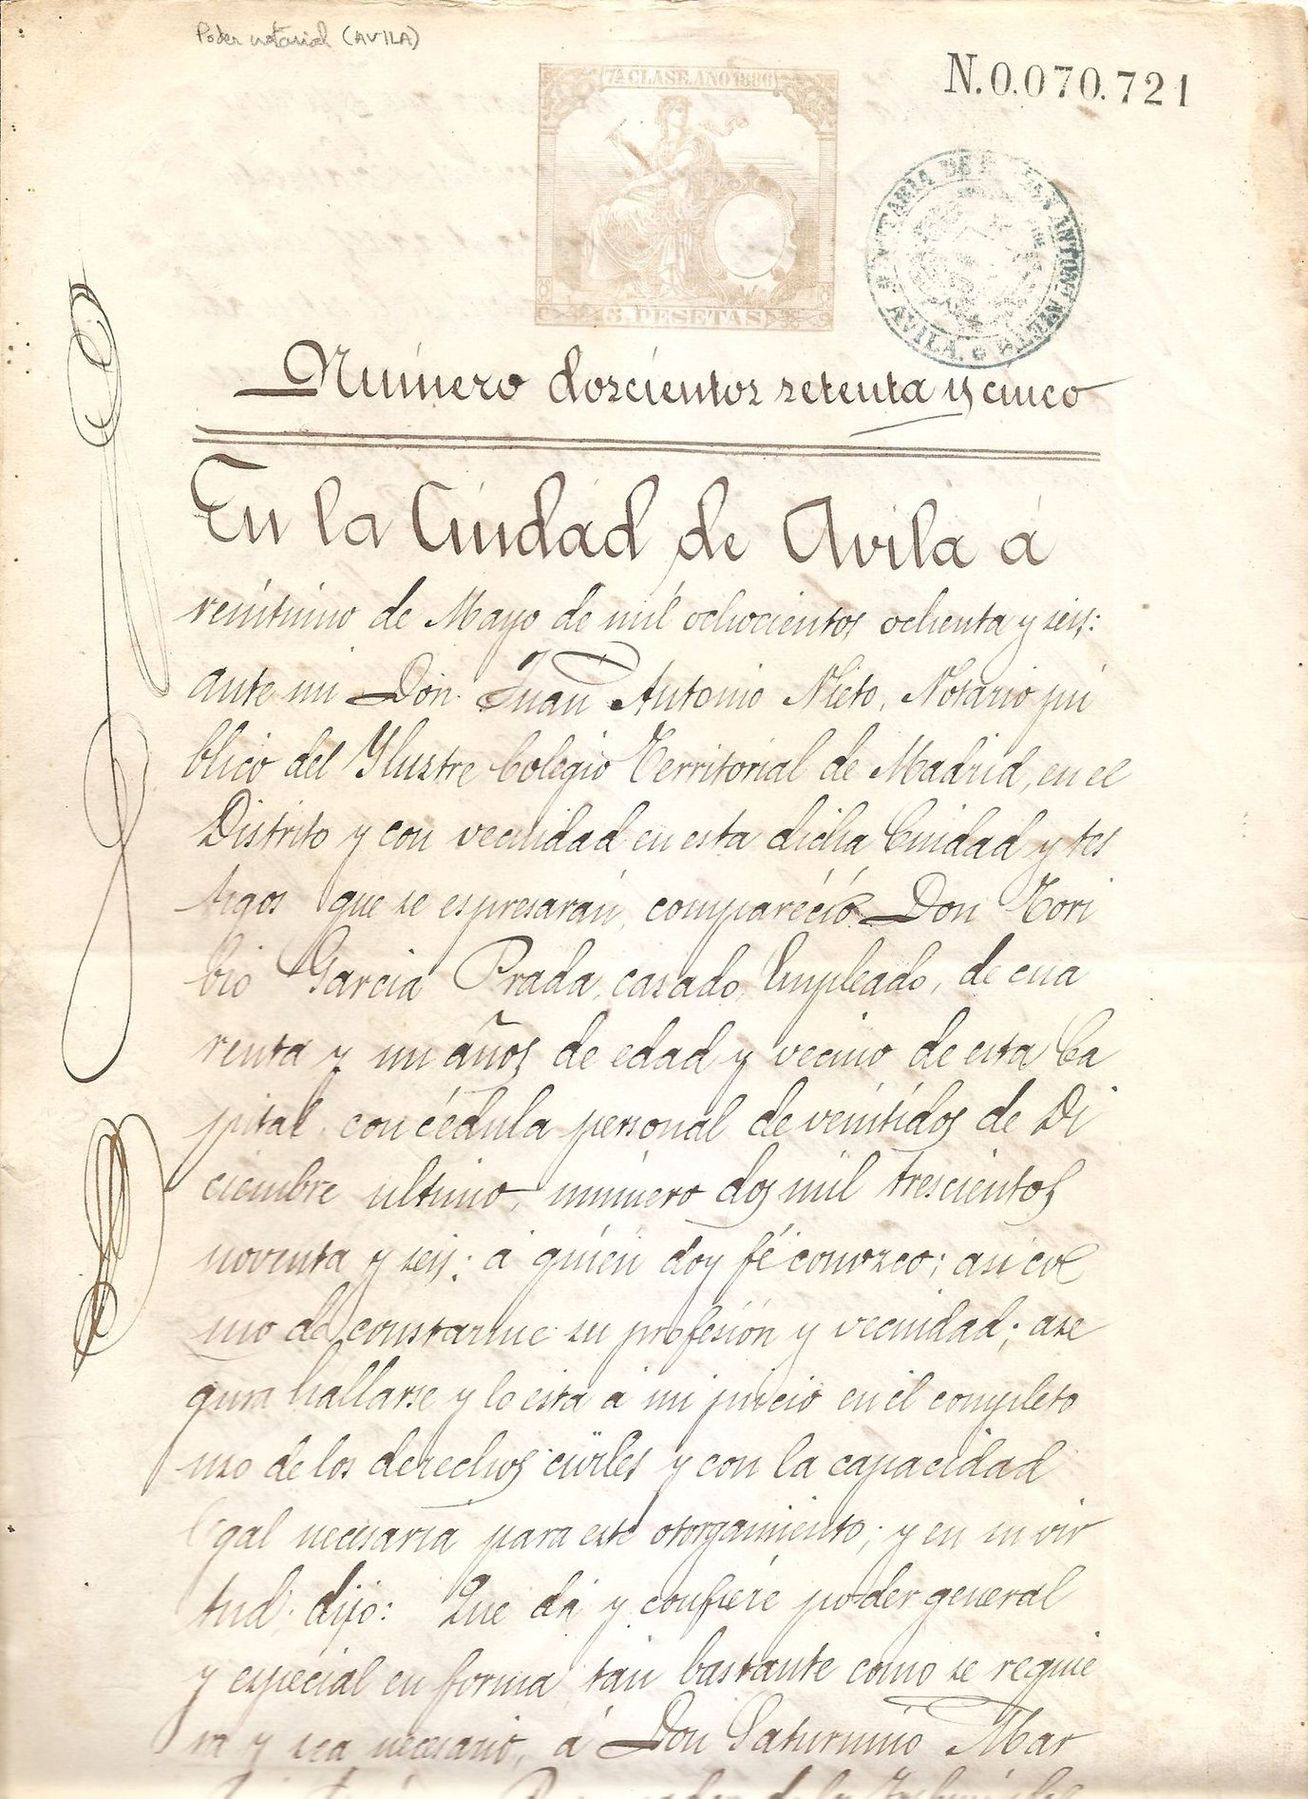 Poder notarial (AVILA)
7ª CLASE. AÑO 1886
N.0.070.721
NOTARIA DE D. JUAN ANTONIO NIETO
AVILA.
5. PESETAS
Número doscientos setenta y cinco
En la Ciudad de Avila á
veintiuno de Mayo de mil ochocientos ochenta y seis:
ante mi Don Juan Antonio Nieto, Notario pú
blico del Ylustre Colegio Territorial de Madrid, en el
Distrito y con vecindad en esta dicha Ciudad y tes
tigos que se espresarán, compareció Don Tori
bio Garcia Prada, casado, Empleado, de cua
renta y un años de edad y vecino de esta Ca
pital, con cédula personal de veintidos de Di
ciembre ultimo, número dos mil trescientos
noventa y seis; á quien doy fé conozco; asi co
mo de constarme su profesión y vecindad; ase
gura hallarse y lo esta á mi juicio en el completo
uso de los derechos civiles y con la capacidad
legal necesaria para este otorgamiento; y en su vir
tud dijo: Que dá y confiere poder general
y especial en forma tan bastante como se requie
ra y sea necesario, á Don Saturnino Mar